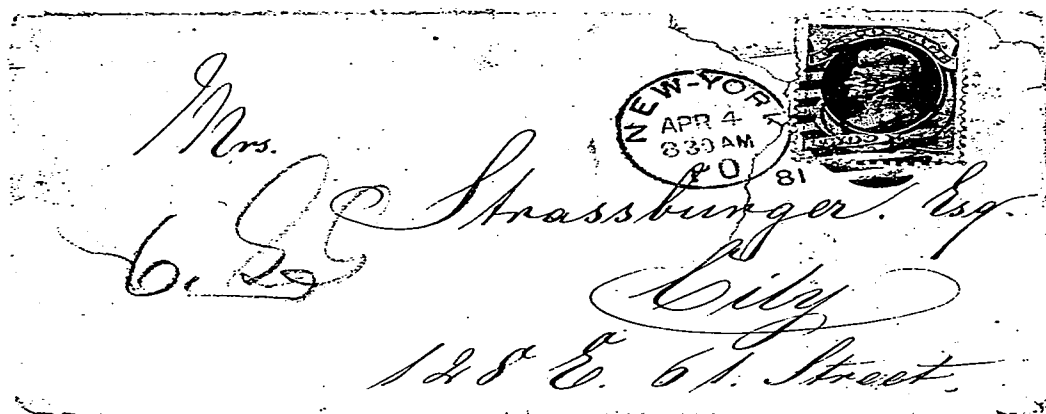 NEW-YORK
APR 4
830 AM
P O
81
Mrs.
Strassburger. Esq.
City
128 E. 61. Street.